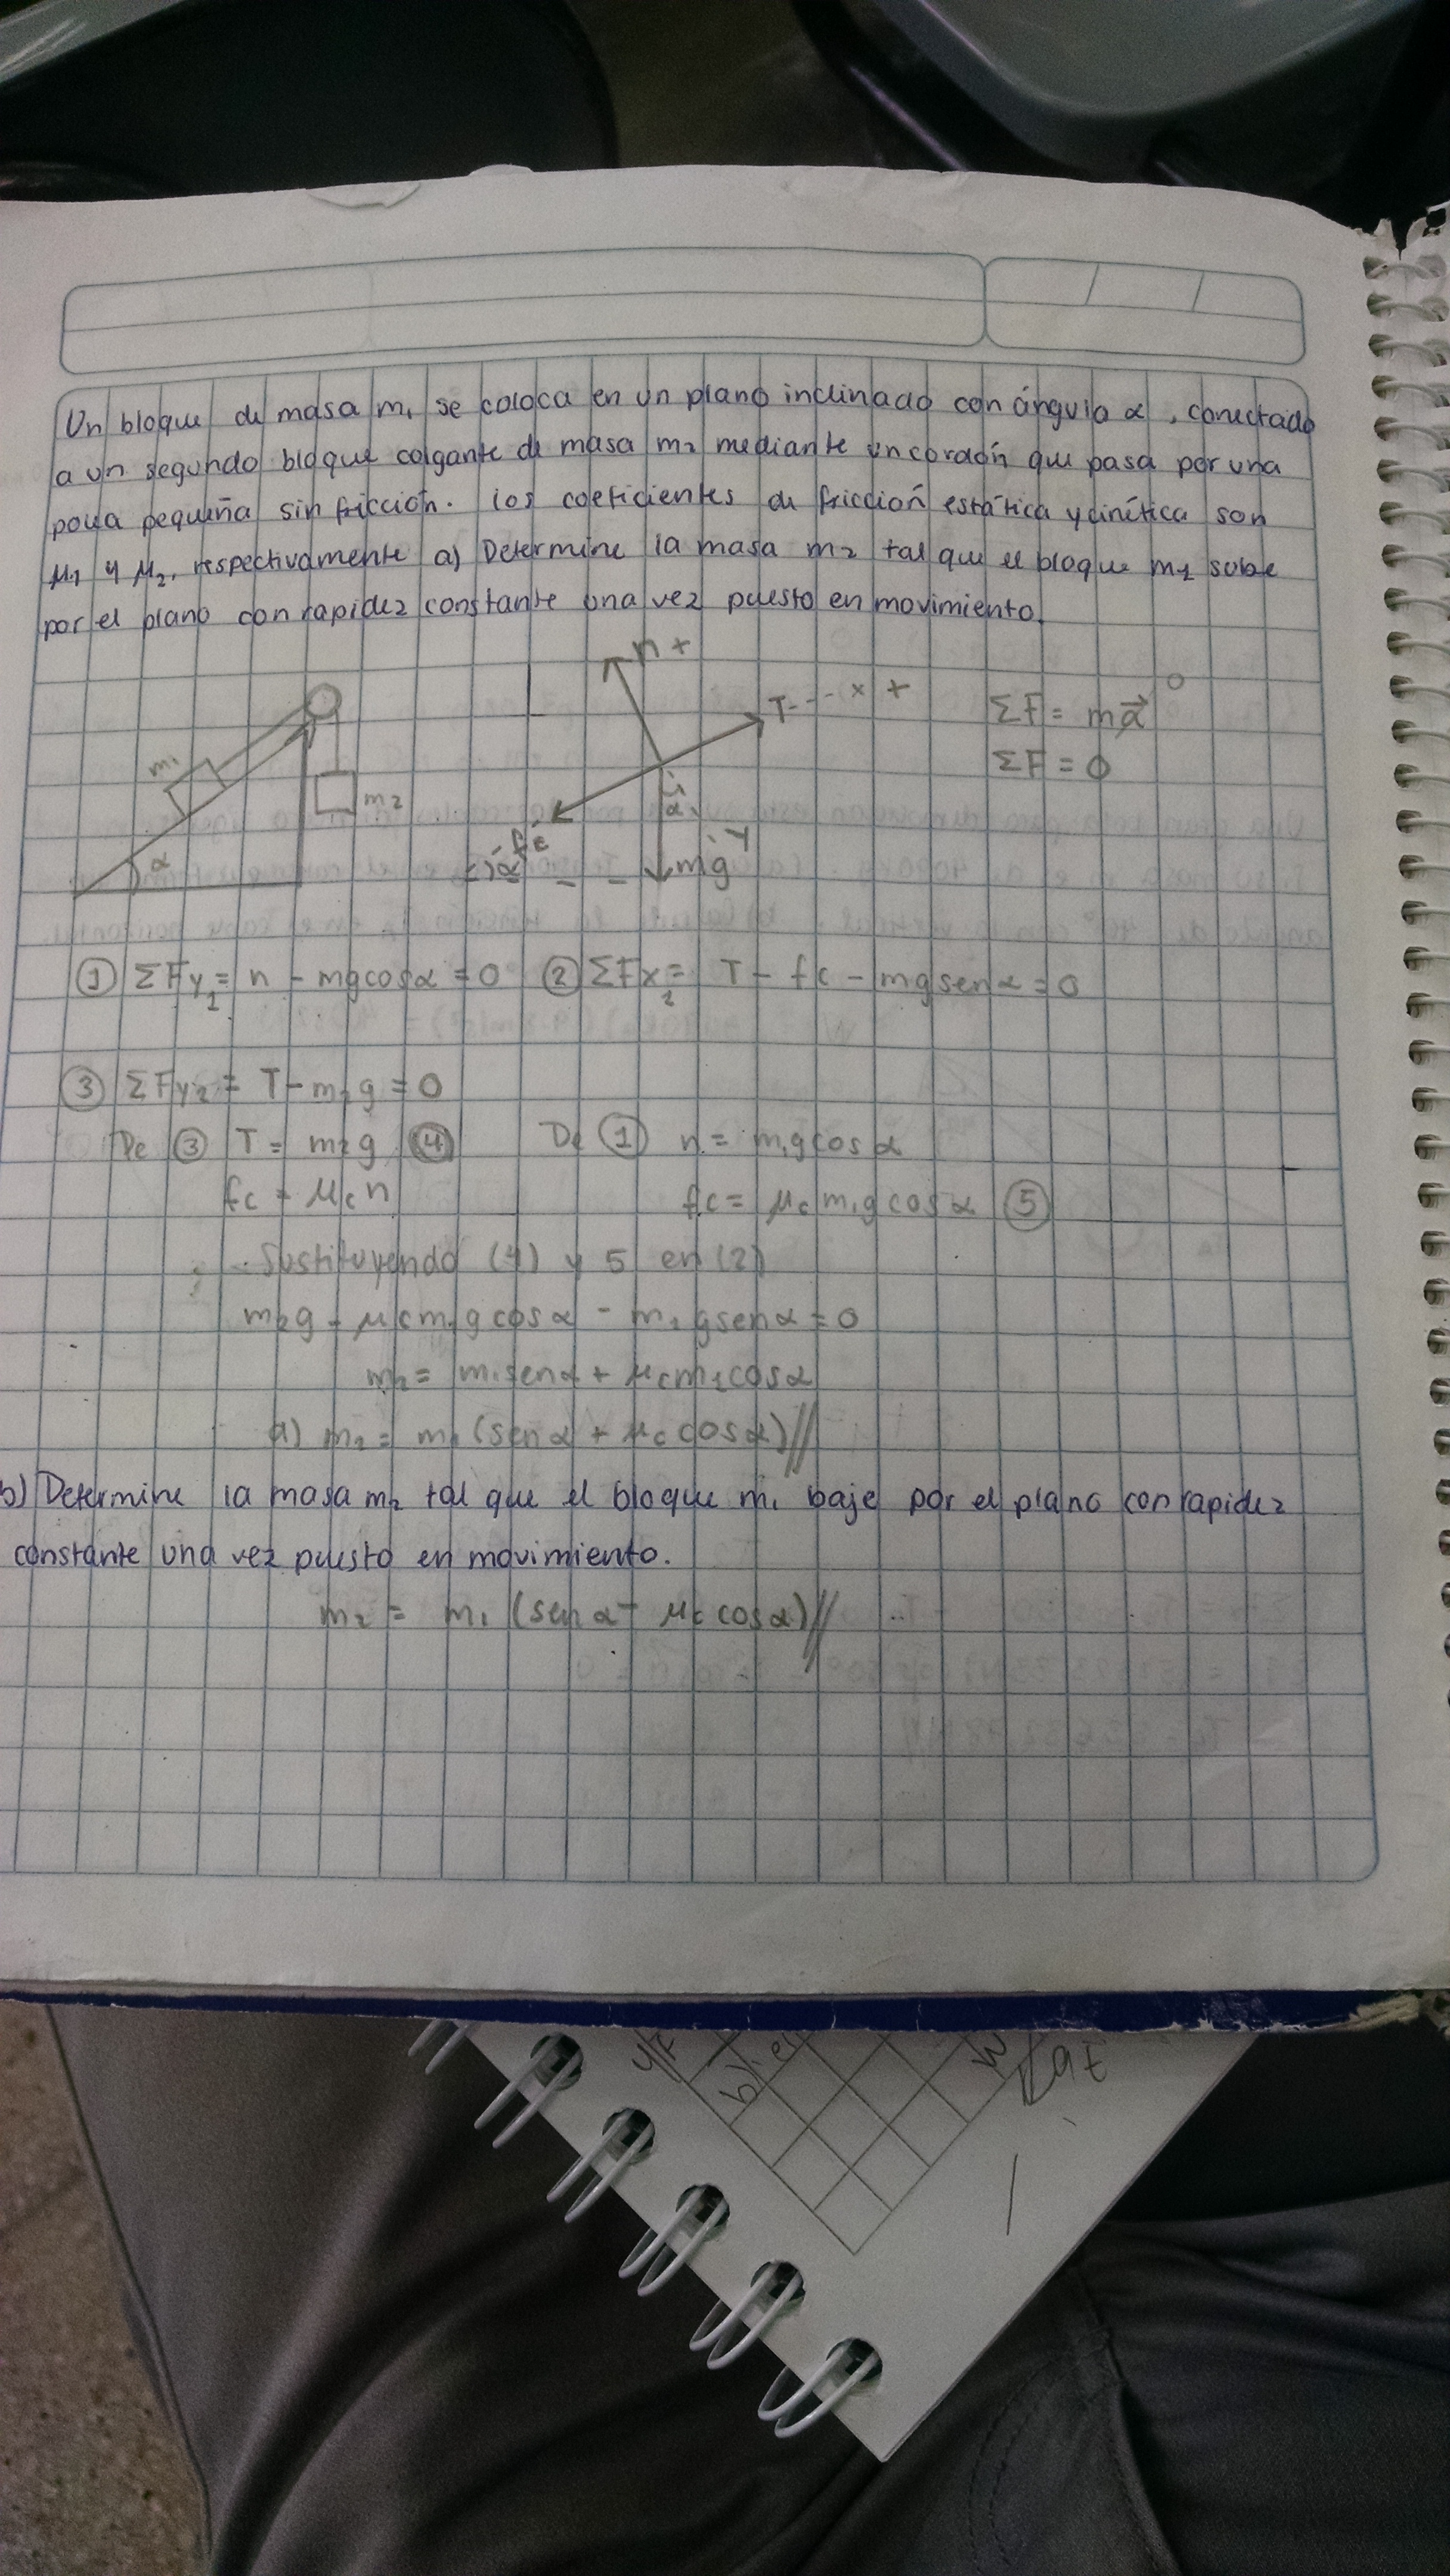 Un bloque de masa m₁ se coloca en un plano inclinado con ángulo α, conectado
a un segundo bloque colgante de masa m₂ mediante un cordón que pasa por una
polea pequeña sin fricción. los coeficientes de fricción estática y cinética son
μ₁ y μ₂, respectivamente a) Determine la masa m₂ tal que el bloque m₁ sube
por el plano con rapidez constante una vez puesto en movimiento.
n +
T - - - x +
ΣF = ma⃗ 0
ΣF = 0
m₁
m₂
α
α
fc
α
mg
y
① ΣFy₁ = n - mg cosα = 0 ② ΣFx₂ = T - fc - mg senα = 0
③ ΣFy₂ = T - m₂g = 0
De ③ T = m₂g ④ De ① n = m₁g cos α
fc = μc n fc = μc m₁g cos α ⑤
Sustituyendo (4) y 5 en (2)
m₂g - μc m₁g cos α - m₁ g sen α = 0
m₂ = m₁ sen α + μc m₁ cos α
a) m₂ = m₁ (sen α + μc cos α)//
b) Determine la masa m₂ tal que el bloque m₁ baje por el plano con rapidez
constante una vez puesto en movimiento.
m₂ = m₁ (sen α - μc cos α)//